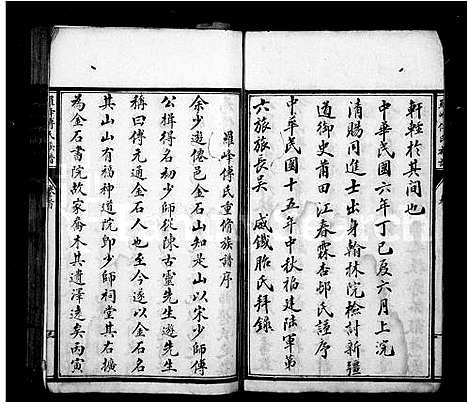 軒輊於其間也
中華民國六年丁巳及六月上浣
清賜同進士出身翰林院檢討新疆
道御史莆田江春霖杏邨氏謹序
中華民國十五年中秋福建陸軍第
六旅旅長吳 威鐵胎氏拜錄
羅峰傅氏重脩族譜序
余少遊僊邑金石山知是山以宋少師傅
公楫得名初少師從陳古靈先生遊先生
稱曰傅元通金石人也至今遂以金石名
其山山有福神道院即少師祠堂其右擴
為金石書院故家喬木其遺澤遠矣丙寅